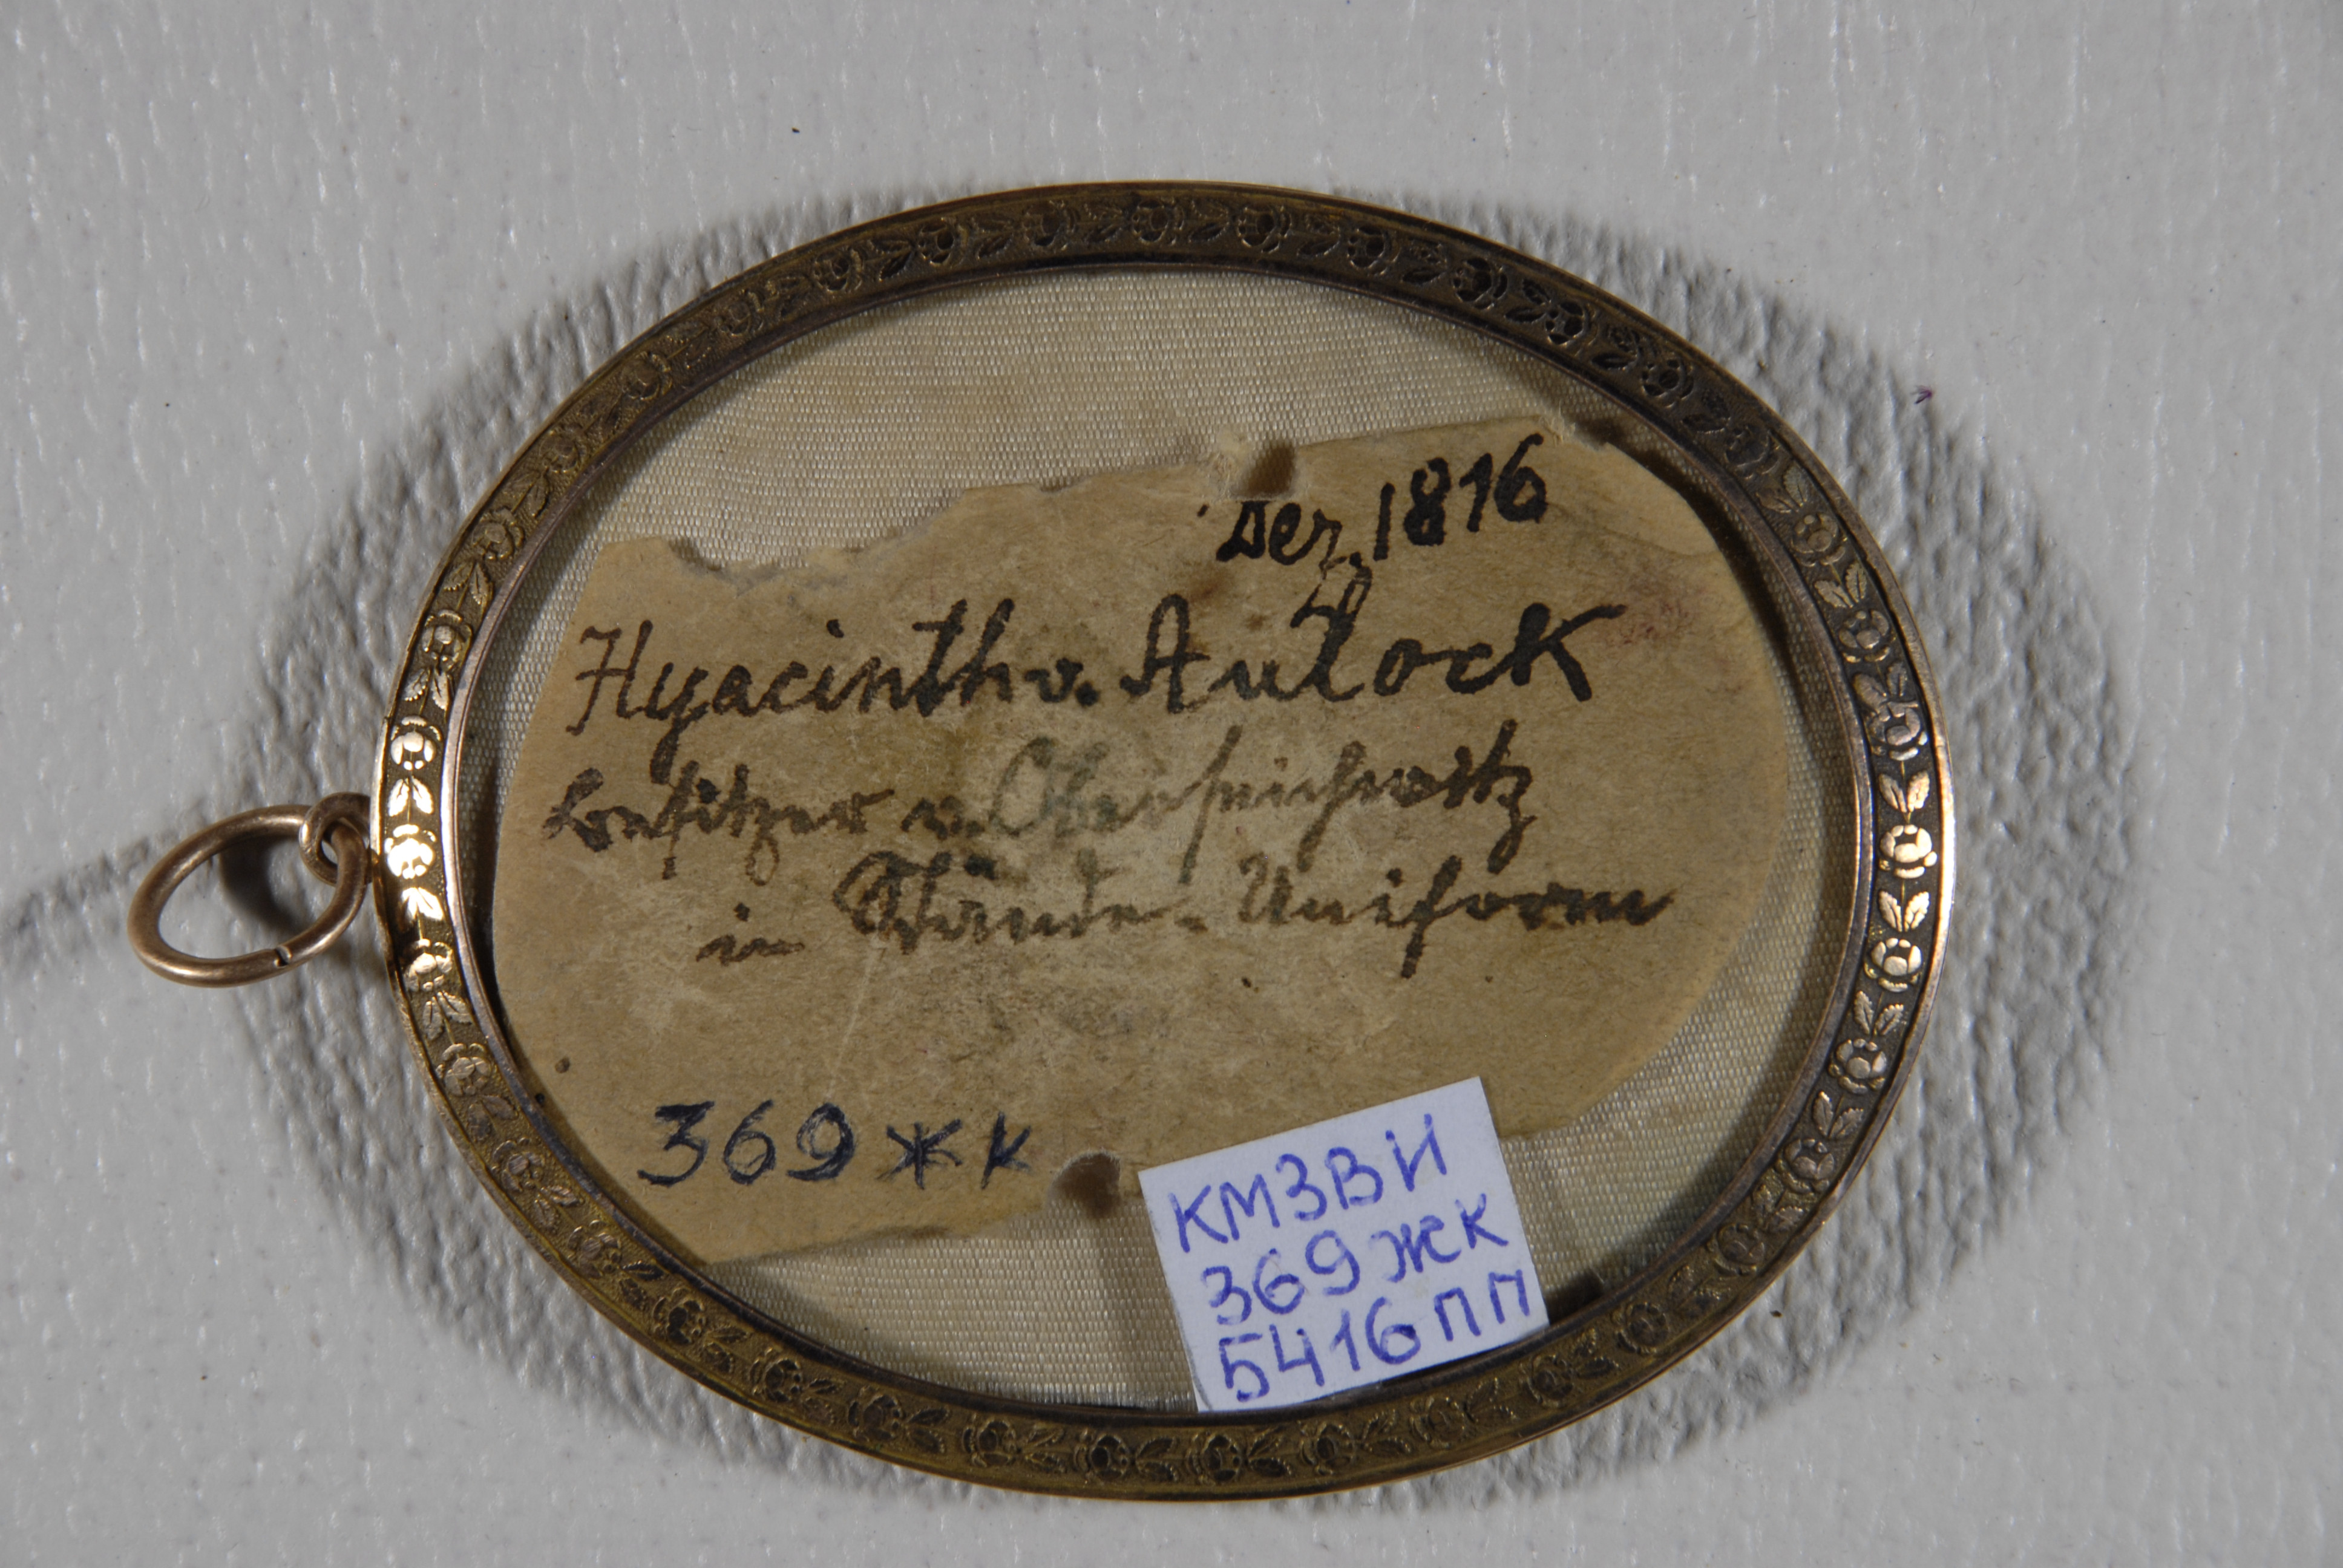 Dez. 1816
Hyacinth v. Aulock
Besitzer v.
in Stände-Uniform
369 ЖК
КМЗВИ
369 жк
5416 ПП